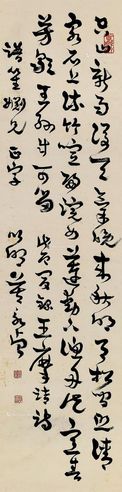 空山新雨後天氣晚來秋明月松間照清
泉石上流竹喧歸浣女蓮動下漁舟隨意春
芳歇王孫自可留 王摩詰詩
譜笙姻兄正字